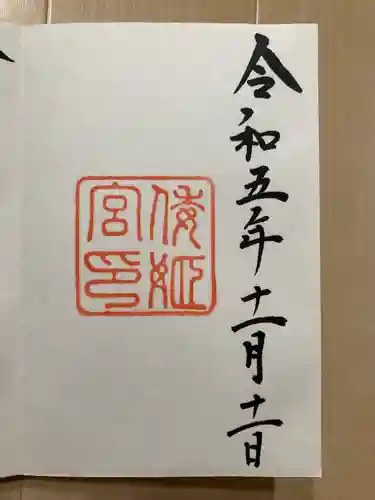 令和五年十一月十一日
倭姫
宮印